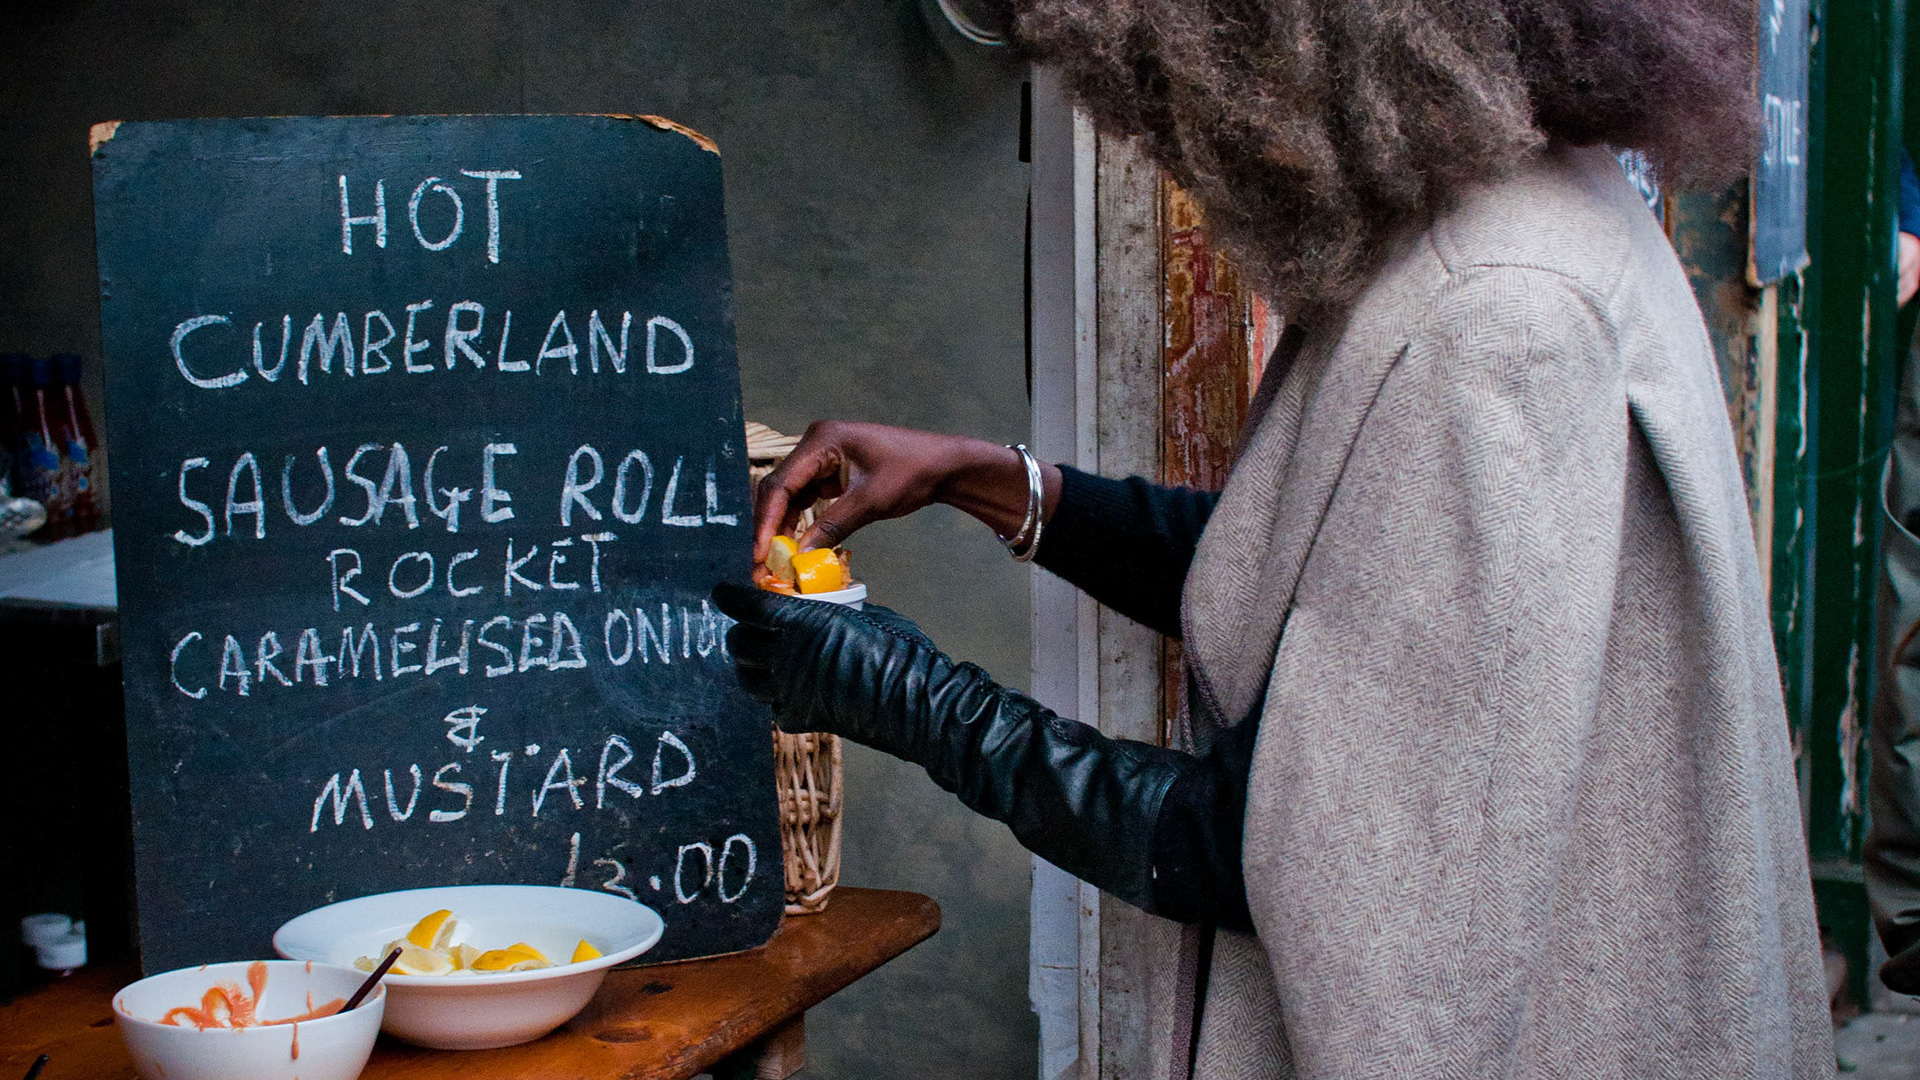 HOT
CUMBERLAND
SAUSAGE ROLL
ROCKET
CARAMELISED ONION
&
MUSTARD
12.00